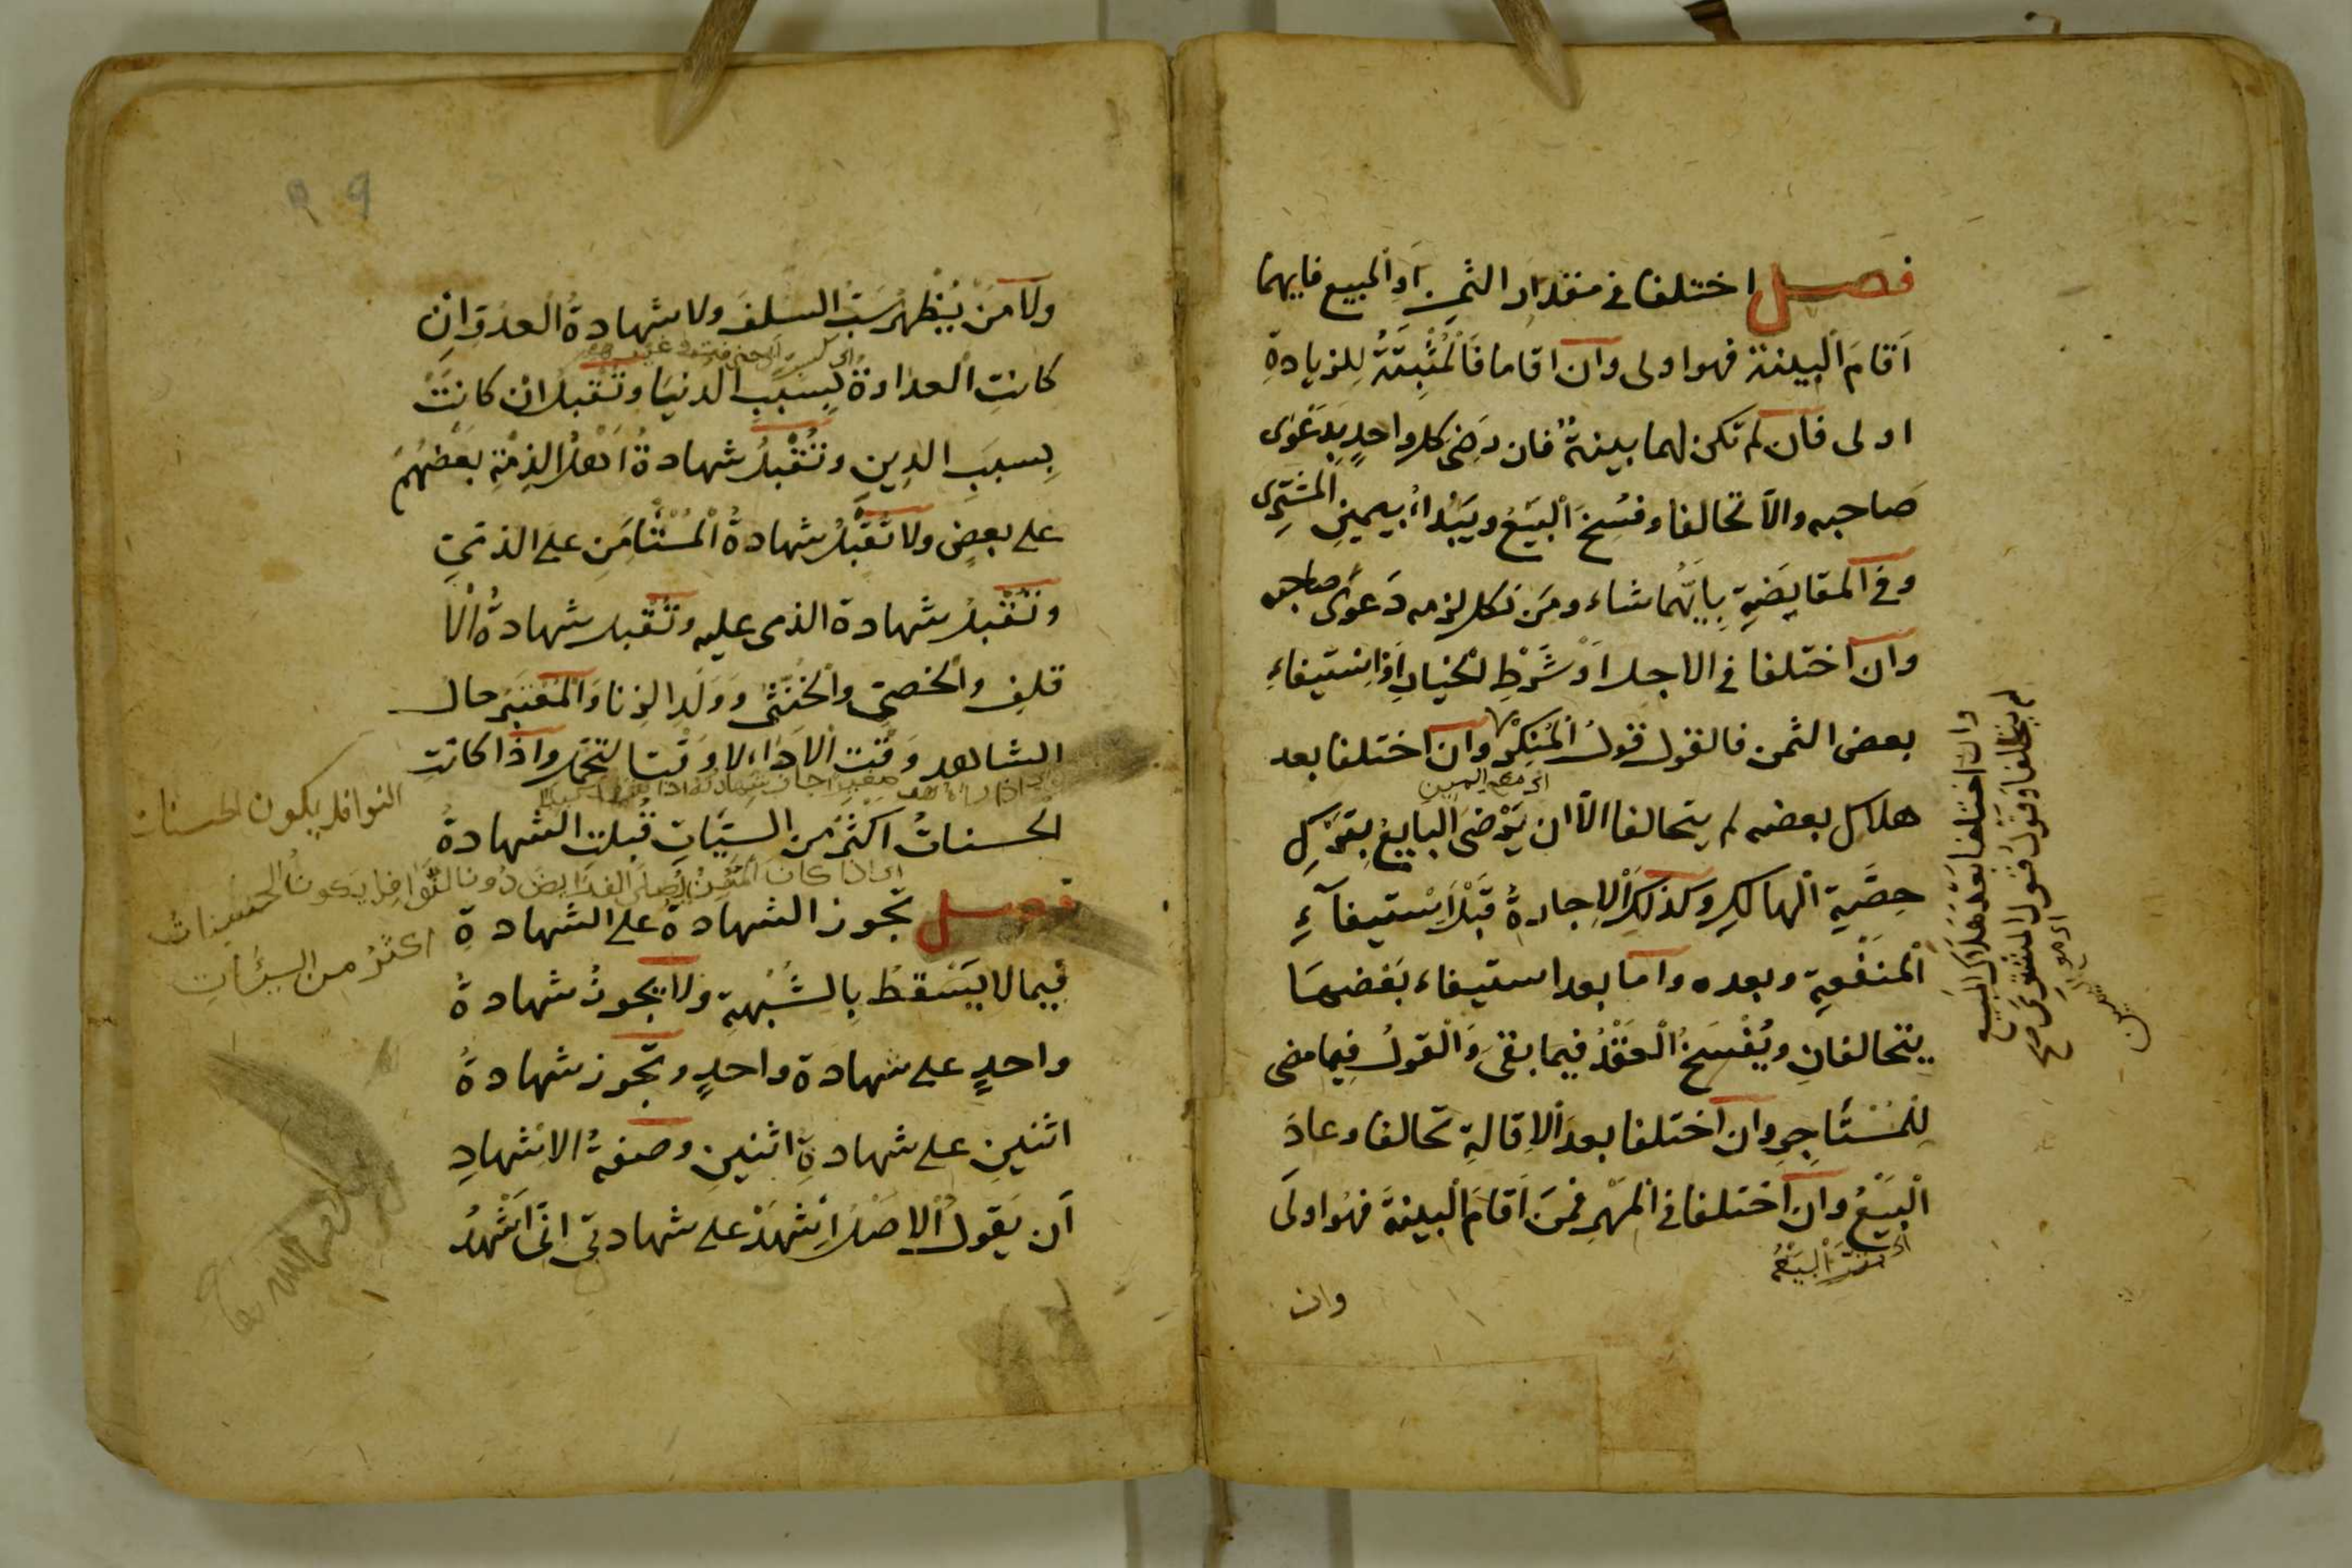 فصل اختلفا في مقدار الثمن او المبيع فايهما
اَقامَ البينة فهو اولى وان اقاما فَالْمُثْبِتَةُ لِلزيادةِ
اولى فان لم تكن لهما بينةٌ فان رَضِىَ كل واحدٍ بِدَعْوى
صَاحبه والاّ تحالفا وفُسِخَ البَيْعُ ويَبْدأُ بيمينِ المشتَرِى
وفي المقايَضَةِ بِاَيِّهُما شاء ومَن نكل لزمه دَعوى صاحبه
وان اختلفا في الاجل اَوْ شَرْطِ الخيارِ اَوْ اِسْتيفاءِ
بعض الثمن فالقول قولُ المُنكِرِ وان اختلفا بعد
اى مع اليمين
هلاك بعضه لم يتحالفا الاّ ان يَرْضى البايعُ بِتَرْكِ
حِصَّةِ الهالكِ وكذلك الاجارةُ قَبْلَ اِسْتيفآءِ
المنفعةِ وبعده واما بعد استيفاء بَعْضِهَا
يتحالفانِ ويُفْسَخُ الْعَقْدُ فيما بقىَ وَالْقولُ فِيما مضى
لِلْمُسْتَأجِرِ وان اختلفا بعد الاِقالةِ تحالفا وعادَ
الْبَيْعُ وان اختلفا في المَهْرِ فمَن اَقامَ البينةَ فهُو اولَى
وان
وان اختلفا بَعْدَ هَلاكِ المبيع
لم يتحالفا وقَوْلُ قَول المشترى
اى مع اليمين
ولا مَنْ يُظْهِرُ سَبَّ السلفَ ولا شهادةُ العدوّ اِن
كانتِ العداوةُ بِسَبَبِ الدنيَا وتُقْبلُ ان كانَتْ
بِسببَ الدِينِ وتُقْبلُ شهادةُ اَهلُ الذِمّةِ بعضُهُم
على بعضٍ ولا تُقبلُ شهادةُ المُسْتَأمَنِ على الذمّى
وتُقْبلُ شهادة الذمى عليه وتُقْبل شهادةُ الا
قلفِ والخصىِّ والخُنثى ووَلَدِ الزنا والمُعْتبَرُ حال
الشاهد وَقْتَ الاداءِ لا وَقْتَ التحمّل واذا كانت
الحسناتُ اكثَرَ من السيّآتِ قُبلتِ الشهادةُ
اى اذا كان المؤمن يُصلى الفرايض دون النوافل يكون الحسنات
اكثَرُ من السيئات
النوافل يكون الحسنات
فصل تجوز الشهادة على الشهادةِ
فيما لا يَسْقطُ بِالشُبْهةِ ولا يجوزُ شهادةُ
واحدٍ على شهادة واحدٍ وتجوز شهادةُ
اثنينِ على شهادةِ اثنينِ وصفةُ الاشهادِ
اَن يَقولَ الاصْلُ اِشْهَدْ على شهادتى انّى اَشْهَدُ